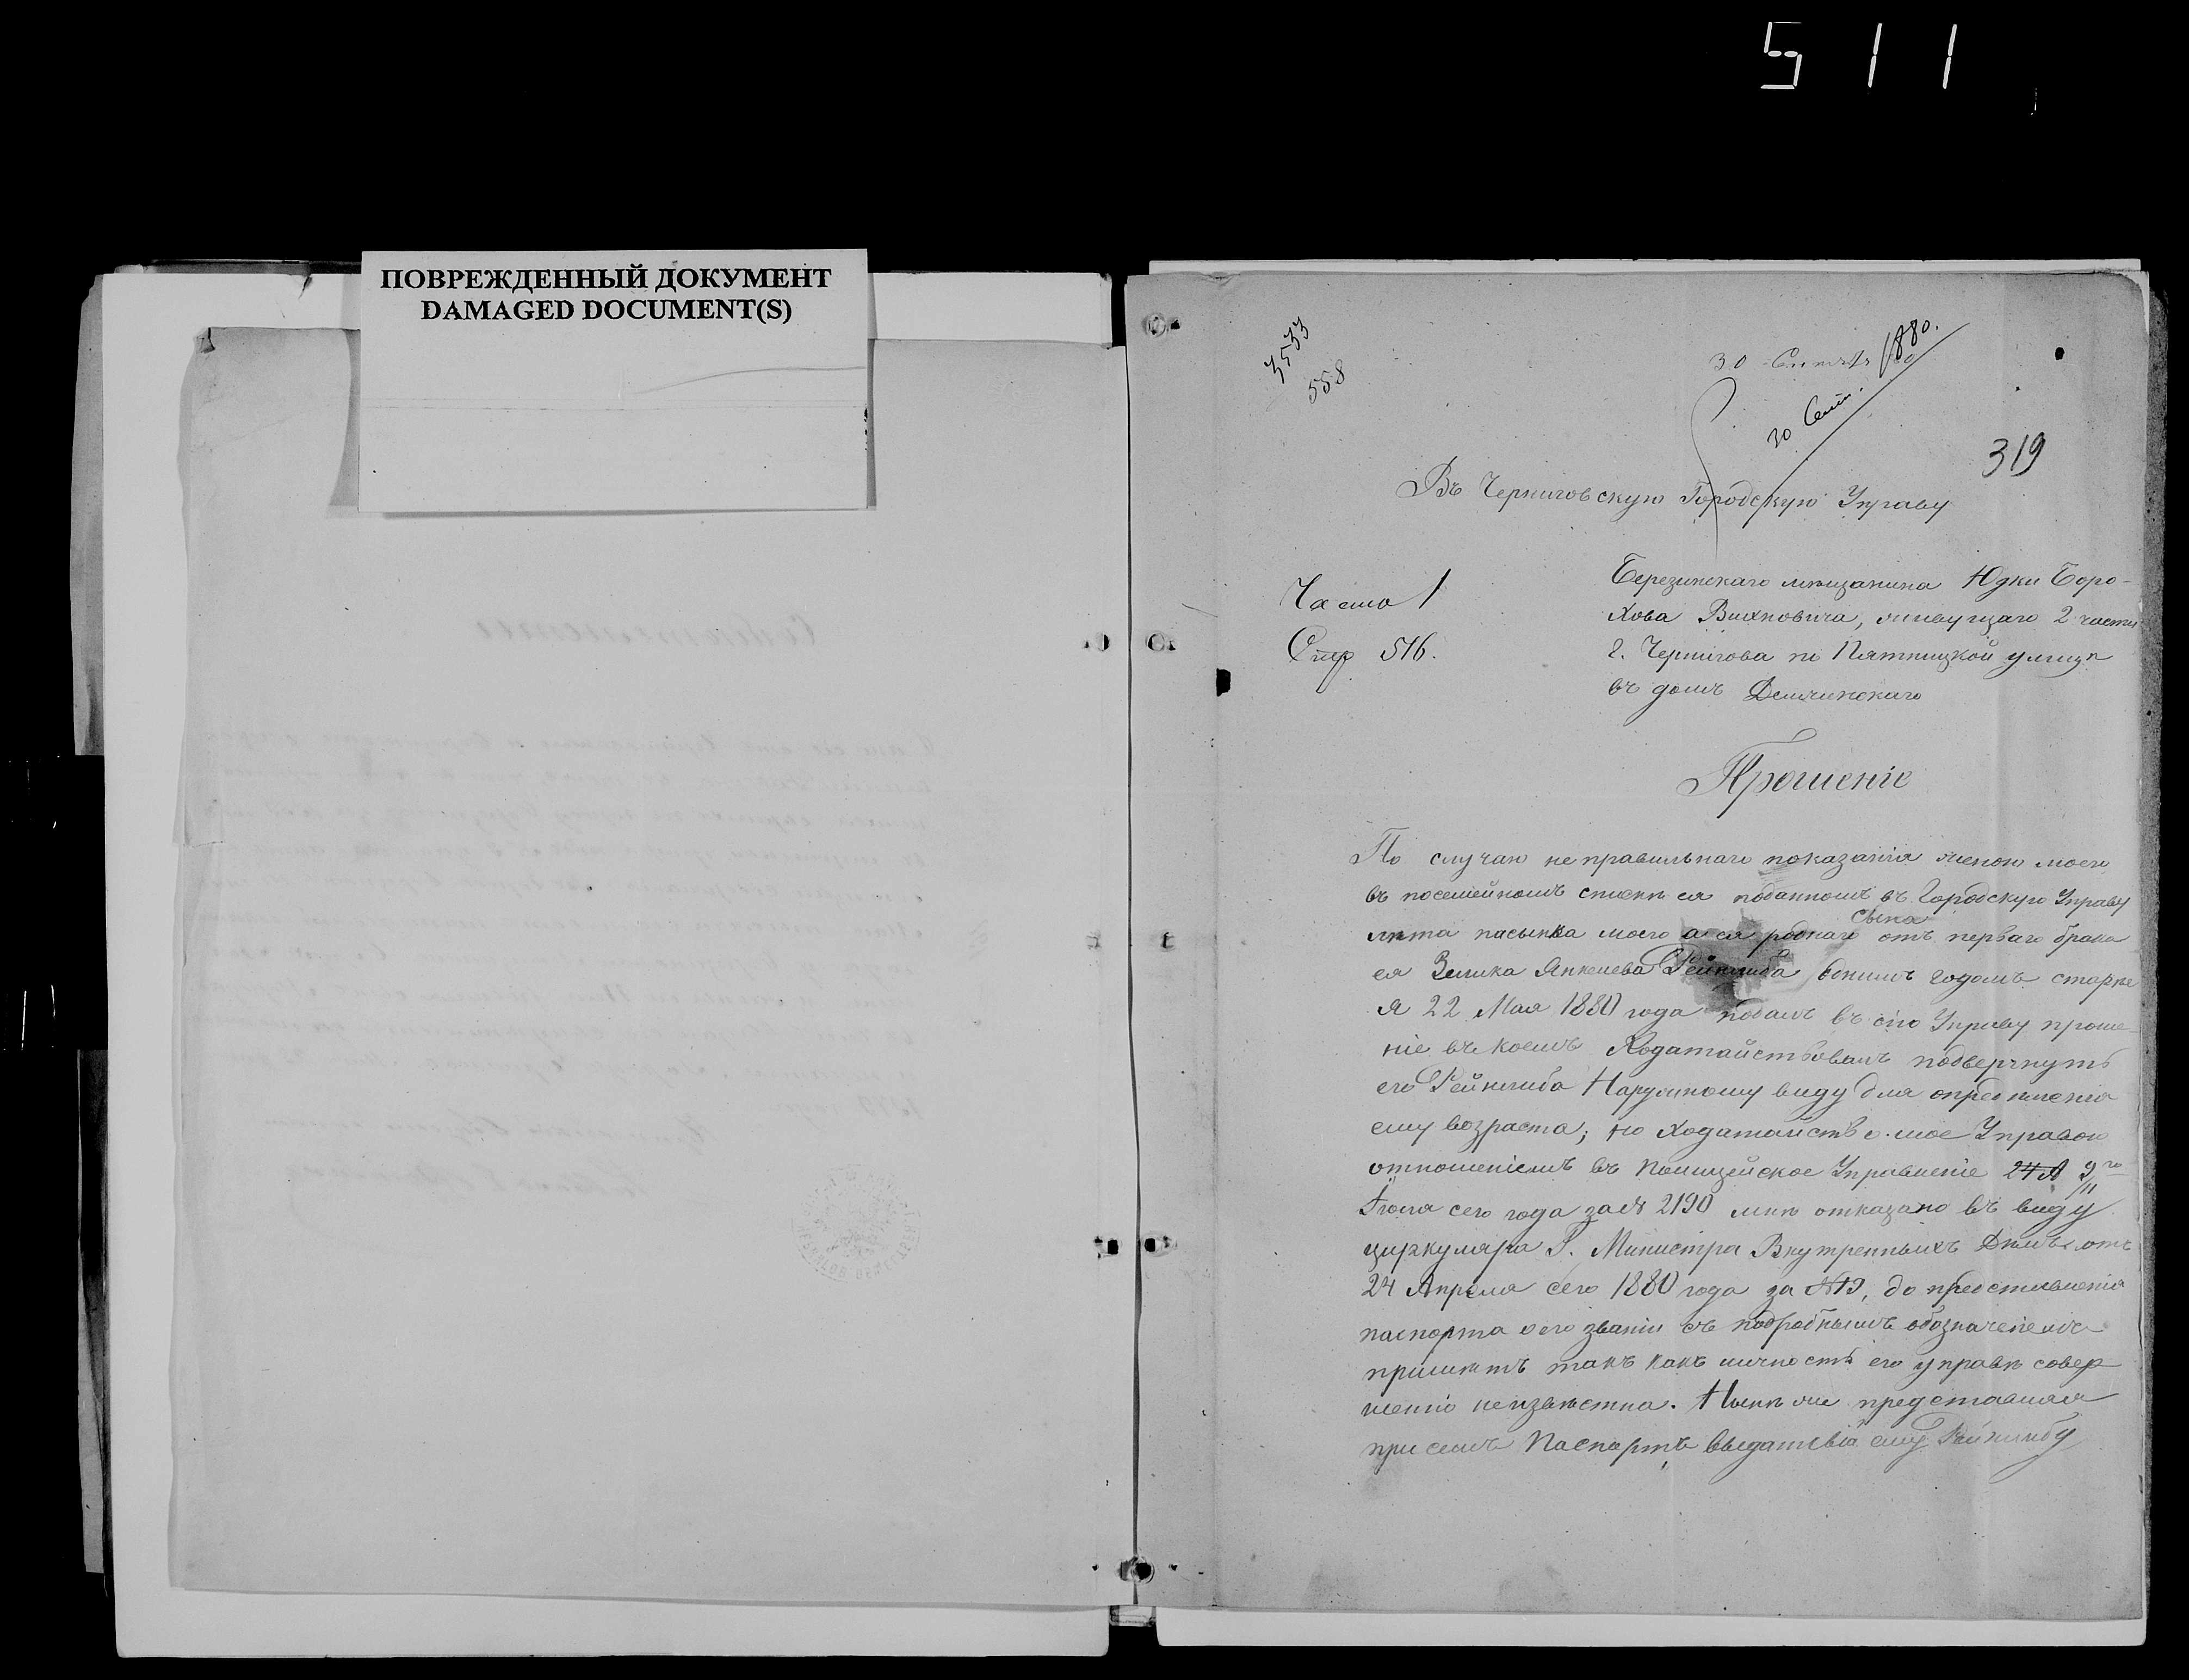 511
ПОВРЕЖДЕННЫЙ ДОКУМЕНТ
DAMAGED DOCUMENT(S)
3533
558
30 1880.
30 Сент.
319
Въ Черниговскую Городскую Управу
Часто 1
Стр 516.
Березинскаго мѣщанина Юдки Боро-
хова Вихновича, живущаго 2 части
г. Чернигова по Пятницкой улицѣ
въ домѣ Демчинскаго
Прошеніе
По случаю неправильнаго показанія женою моею
въ посемейномъ спискѣ ея поданномъ въ Городскую Управу
лѣта пасынка моего а ея роднаго сына отъ перваго брака
ея Зелика Янкелева Рейнгиба однимъ годомъ старѣе
Я 22 Мая 1880 года подалъ въ сію Управу проше
ніе въ коемъ Ходатайствовалъ подвергнуть
его Рейнгиба Наружному виду для опредѣленія
ему возраста; но ходатайство мое Управою
отношеніемъ въ Полицейское Управленіе 24 А 9го/11
Іюля сего года за № 2190 мнѣ отказано въ виду
циркуляра Г. Министра Внутренныхъ Дѣлъ отъ
24 Апрѣля сего 1880 года за №19, до представленія
паспорта о его званіи съ подробнымъ обозначеніемъ
примѣтъ такъ какъ личность его управѣ совер
шенно неизвѣстна. Нынѣ же представляя
при семъ Паспортъ выданный ему Рейнгибу